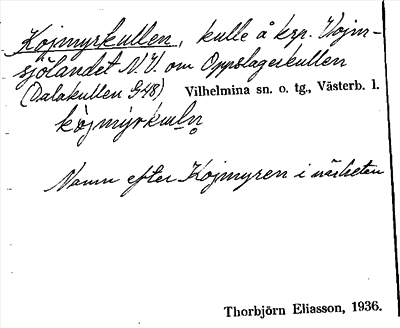 Kojmyrkullen, kulle å krp. Vojm-
sjölandet N.V. om Opplagerkullen
(Dalakullen G48) Vilhelmina sn. o. tg., Västerb. l.
kòjmýrkuln
Namn efter Kojmyren i närheten
Thorbjörn Eliasson, 1936.